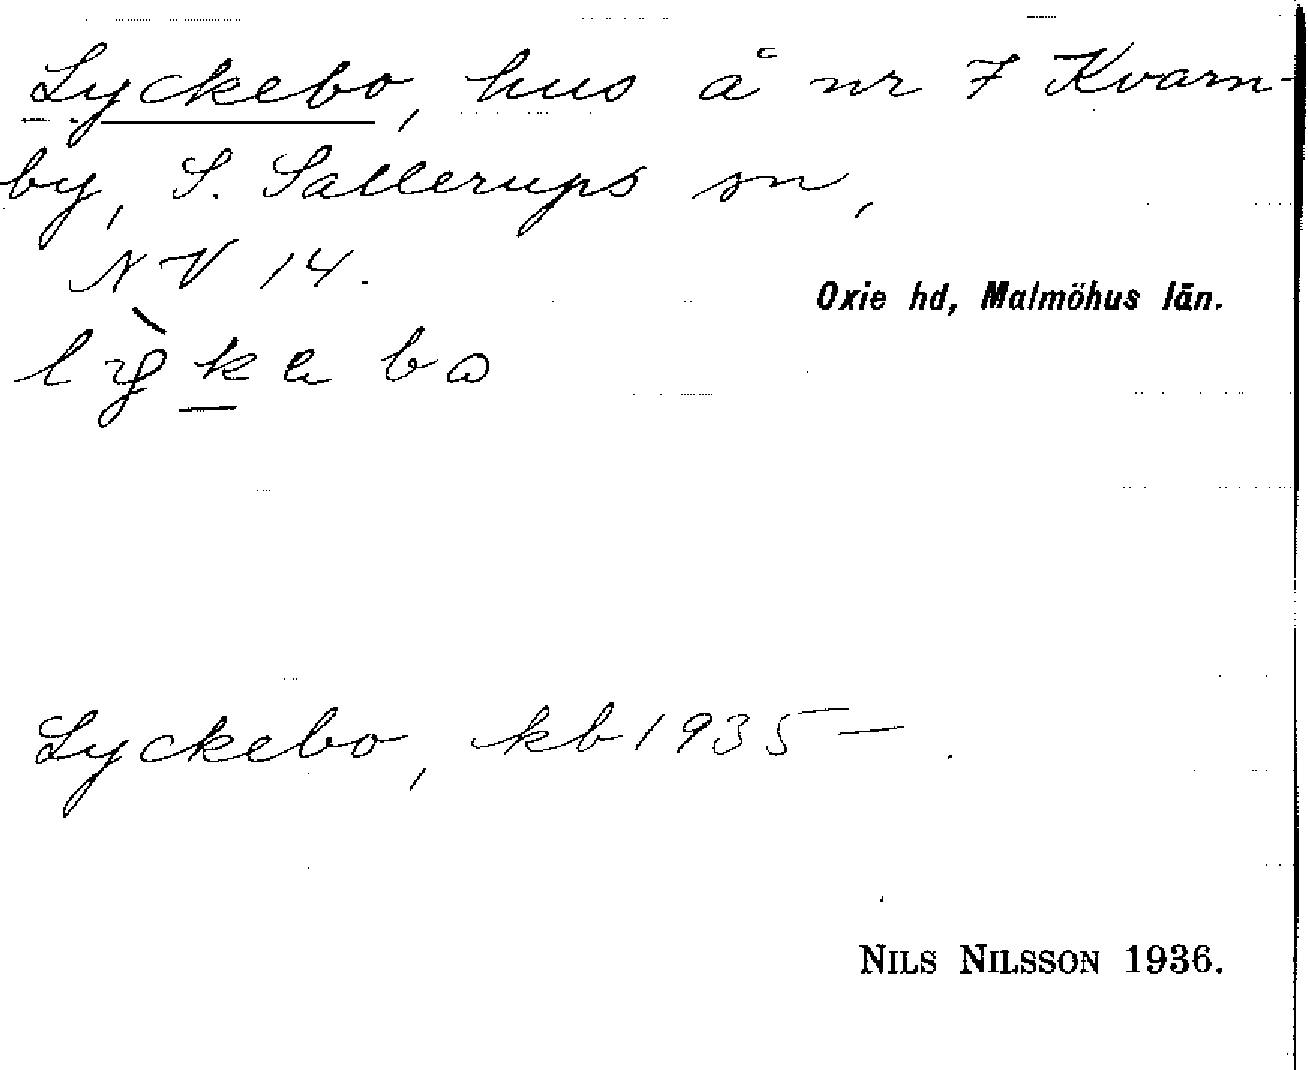 Lyckebo, hus å nr 7 Kvarn-
by, S. Sallerups sn,
NV 14.
Oxie hd, Malmöhus län.
Lyckebo, kb 1935—.
NILS NILSSON 1936.